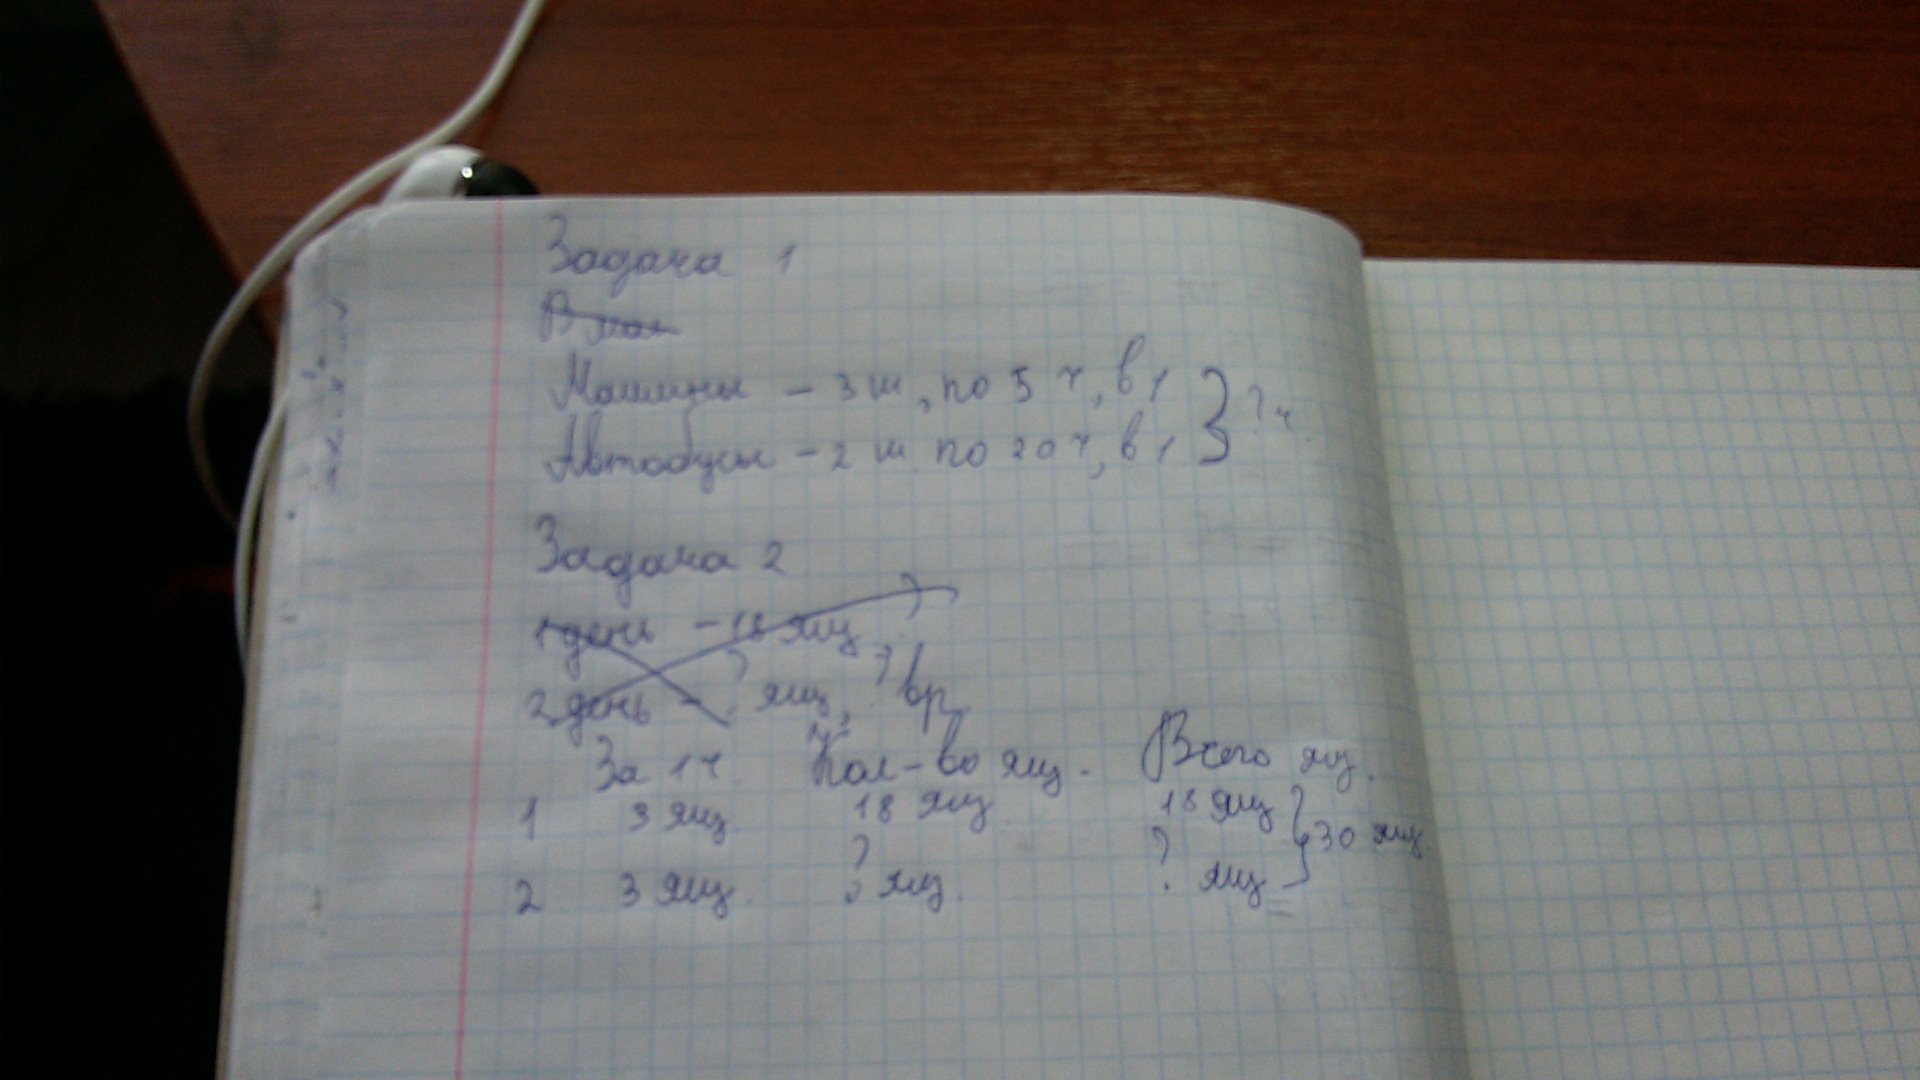 Задача 1
Машины - 3 ш, по 5 ч, в 1 } ? ч.
Автобусы - 2 ш по 20 ч, в 1
Задача 2
1 день - 18 ящ
2 день - ? ящ, ? вр
За 1 ч Кол-во ящ. Всего ящ.
1 3 ящ 18 ящ. 18 ящ } 30 ящ.
2 3 ящ. ? ящ. ? ящ